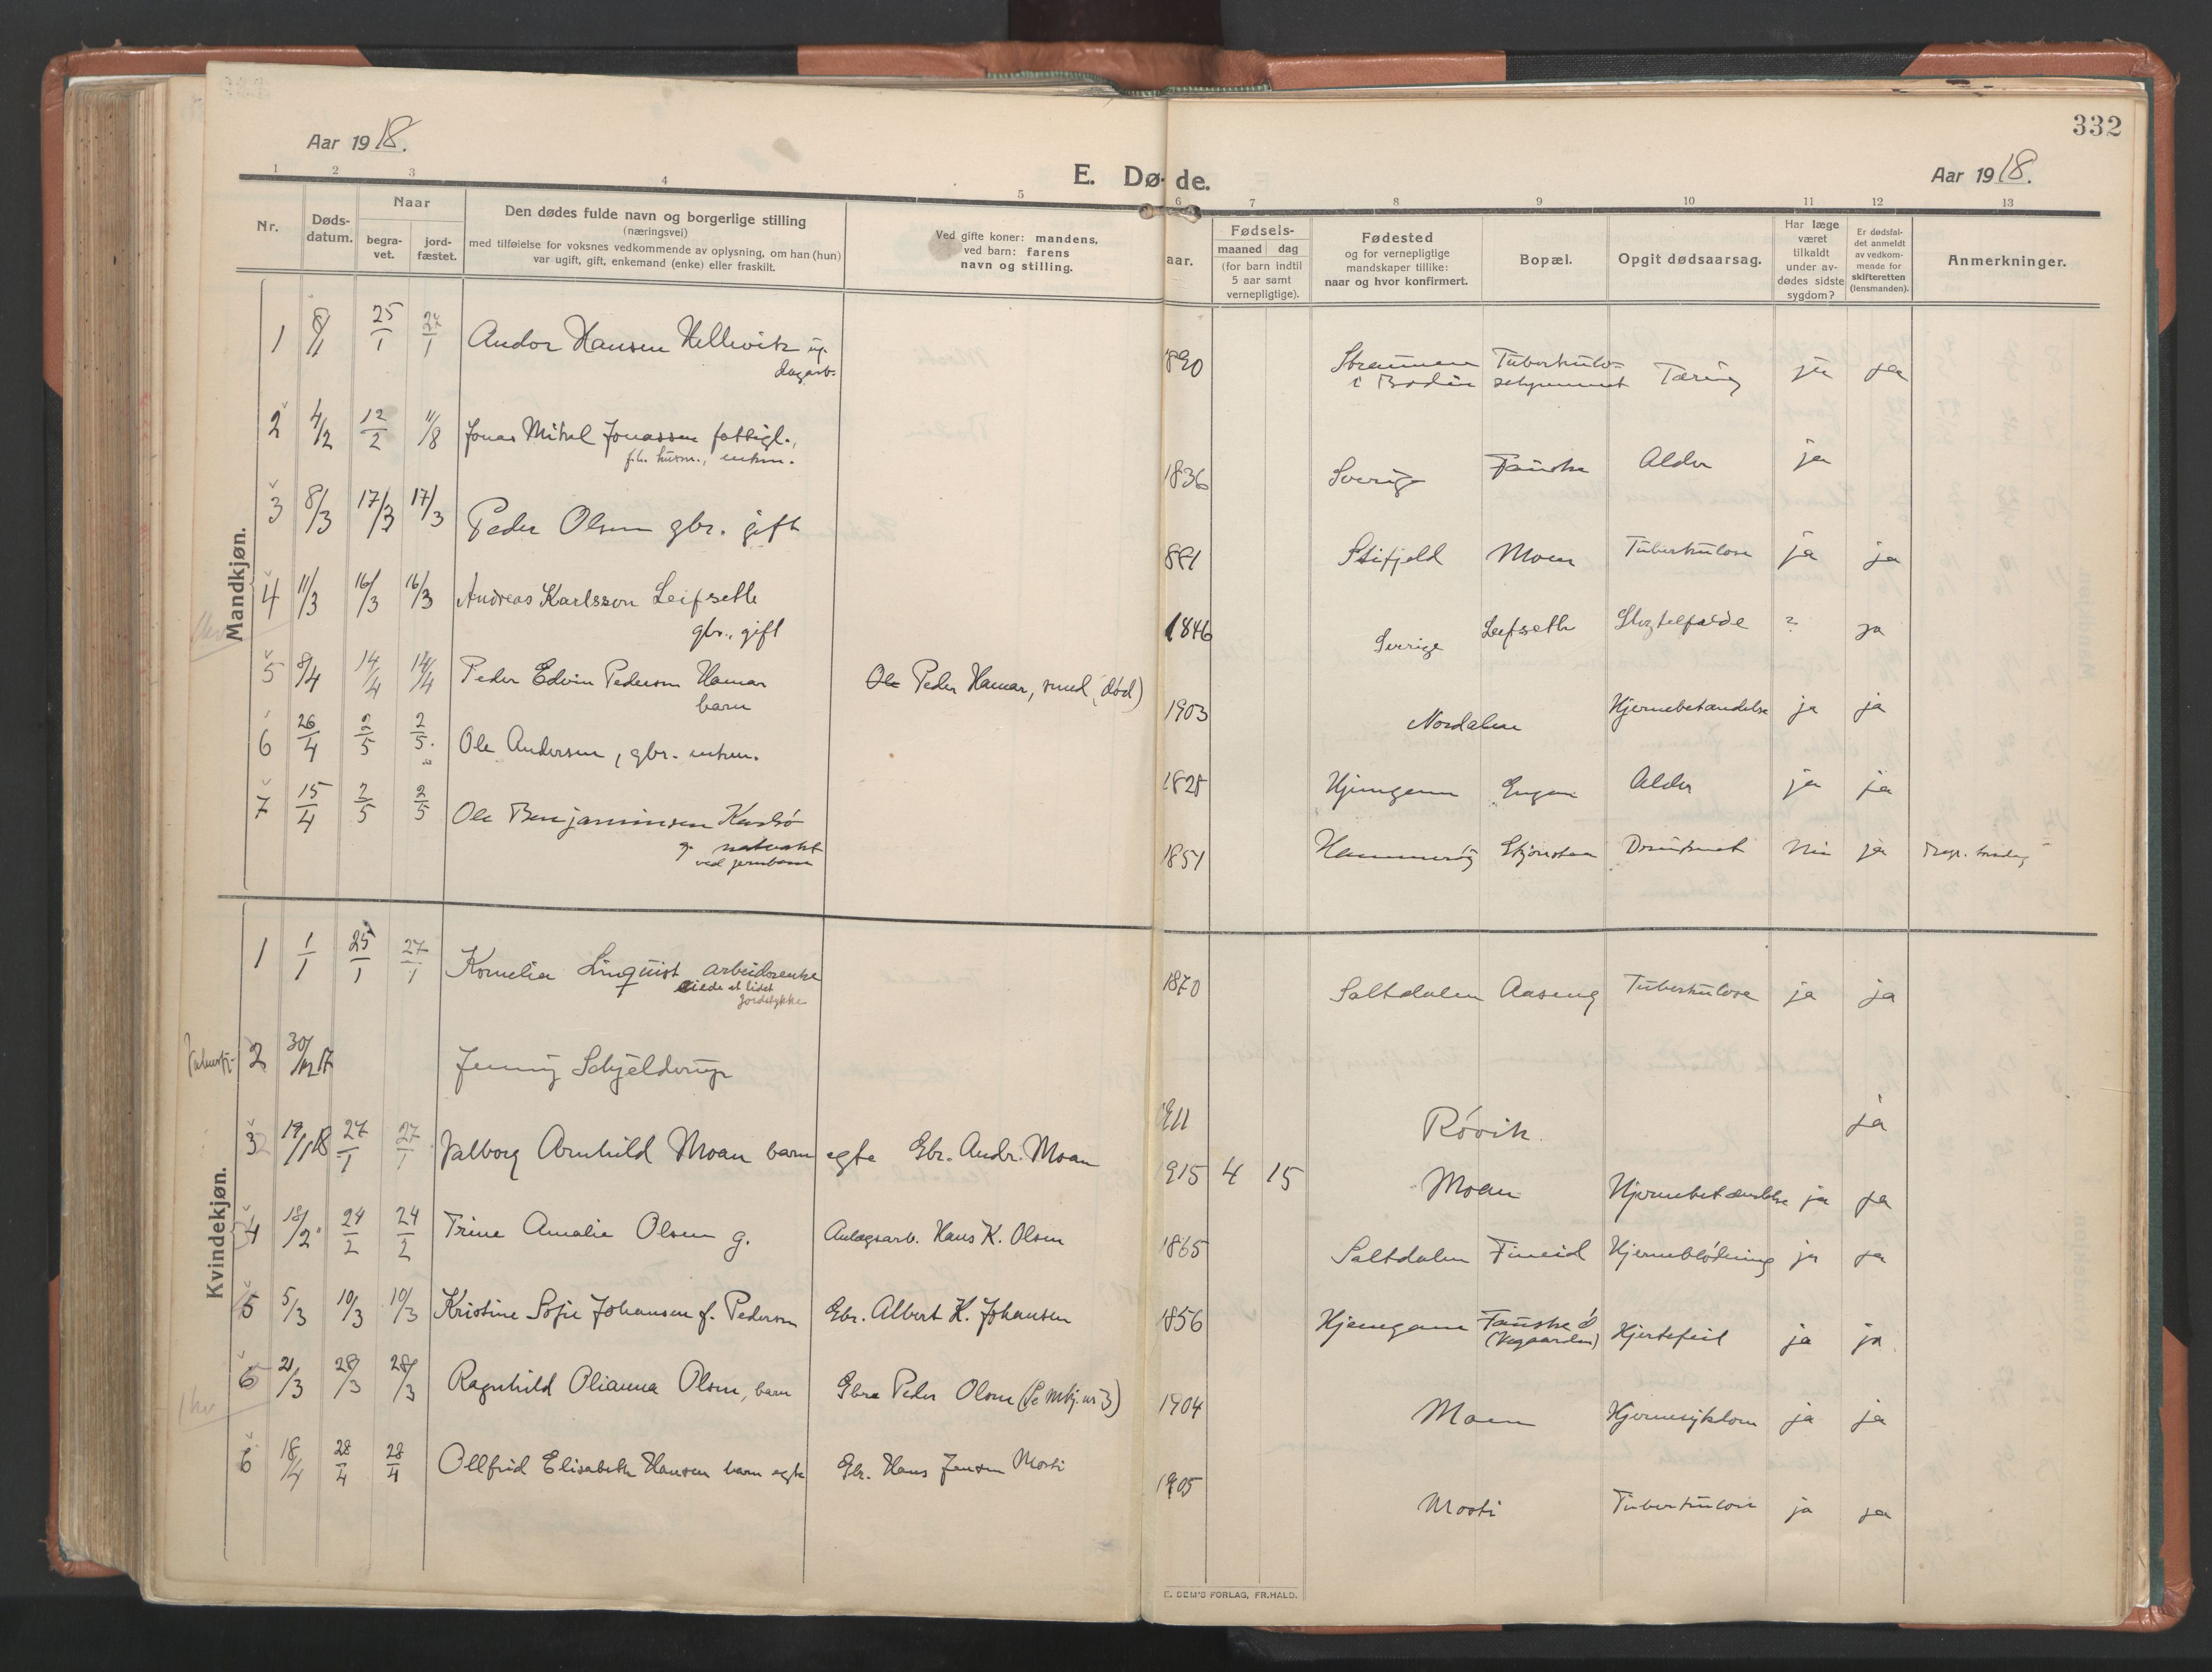 332
Aar 1918.
E. Døde.
Aar 1918.
1 2 3 4 5 6 7 8 9 10 11 12 13
Nr.
Døds-
datum.
Naar
begra-
vet.
jord-
fæstet.
Den dødes fulde navn og borgerlige stilling
(næringsvei)
med tilføielse for voksnes vedkommende av oplysning, om han (hun)
var ugift, gift, enkemand (enke) eller fraskilt.
Ved gifte koner: mandens,
ved barn: farens
navn og stilling.
aar.
Fødsels-
maaned dag
(for barn indtil
5 aar samt
vernepligtige).
Fødested
og for vernepligtige
mandskaper tillike:
naar og hvor konfirmert.
Bopæl.
Opgit dødsaarsag.
Har læge
været
tilkaldt
under av-
dødes sidste
sygdom?
Er dødsfal-
det anmeldt
av vedkom-
mende for
skifteretten
(lensmanden).
Anmerkninger.
Mandkjøn.
1 8/1 25/1 27/1 Andor Hansen Hellevik ug. 1890 Straumen Tuberkulo- Tæring ja ja
dagarb. i Bodin sehjemmet
2 4/2 12/2 11/8 Jonas Mikal Jonassen fattigl., 1836 Sverig Fauske Alder ja
fh. husm., enkm.
3 8/3 17/3 17/3 Peder Olsen gbr. gift Stifjeld Moen Tuberkulose ja ja
4 11/3 16/3 16/3 Andreas Karlsson Leifsethe 1846 Sverige Leifseth ? ja
gbr., gift
5 8/4 14/4 14/4 Peder Edvin Pedersen Hamar Ole Peder Hamar, smed (død) 1903 Nordalen Hjernebetændelse ja ja
barn
6 26/4 2/5 2/5 Ole Andersen, gbr. enkm. 1828 Hjemgam Engan Alder ja ja
7 15/4 2/5 2/5 Ole Benjaminsen 1851 Hammerøy Skjonstaa Druknet Nei ja
g.
ved jernbanen
Kvindekjøn.
1 1/1 25/1 27/1 Kornelia Linquist arbeidsenke 1870 Saltdalen Aaseng Tuberkulose ja ja
eiede et lidet
jordstykke
2 30/12 17 Jenny Schjelderup 1911 Røvik ja
3 19/1 18 27/1 27/1 Valborg Arnhild Moan barn egte Gbr. Andr. Moan 1915 4 15 Moan Hjernebetændelse ja ja
4 18/2 24/2 24/2 Trine Amalie Olsen g. Anlægsarb. Hans K. Olsen 1865 Saltdalen Fineid Hjerneblødning ja ja
5 5/3 10/3 10/3 Kristine Sofie Johansen f. Pedersen Gbr. Albert K. Johansen 1856 Hjemgam Fauske Hjertefeil ja ja
(Vegaarden)
6 21/3 28/3 28/3 Ragnhild Olianna Olsen, barn Gbr. Peder Olsen (se mkj. nr 3) 1904 Moen Hjernesykdom ja ja
6 18/4 28/4 28/4 Ollfrid Elisabeth Hansen barn egte Gbr. Hans Jensen Mosti 1905 Mosti Tuberkulose ja ja
E. SEM'S FORLAG, FR.HALD.